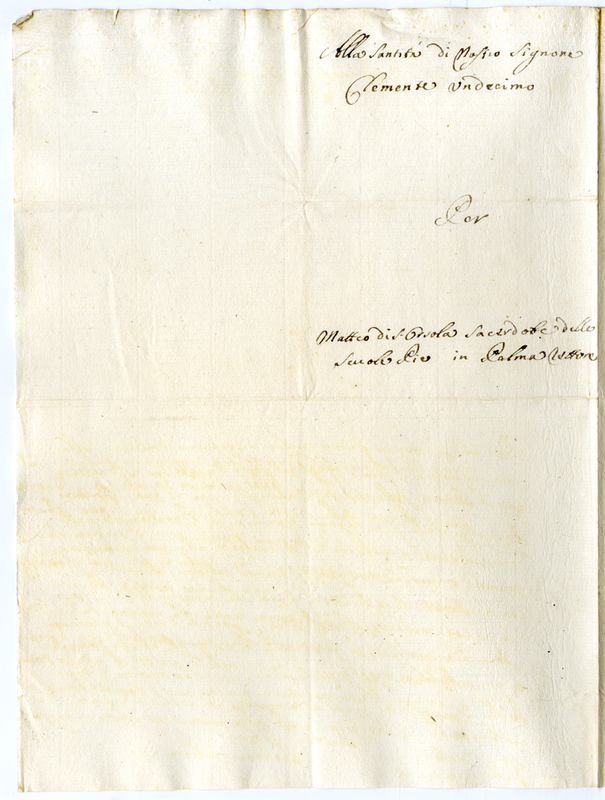 Alla Santità di Nostro Signore
Clemente Undecimo
Per
Matteo di S. Orsola Sacerdote delle
Scuole Pie in Palma